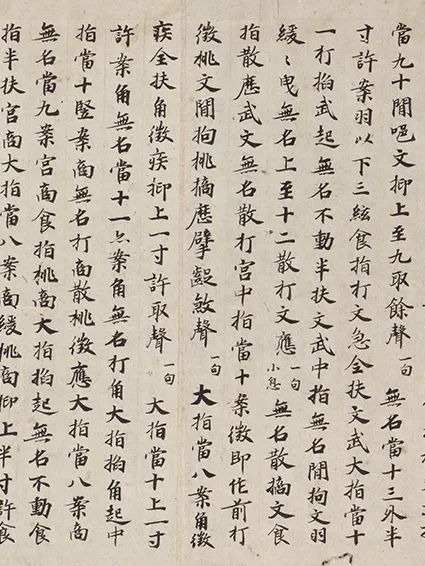 當九十閒文抑上至九取餘聲一句 無名當十三外半
寸許案羽以下三絃食指打文急全扶文武大指當十
一打掐武起無名不動半扶文武中指無名閒拘文羽
緩〻曳無名上至十二散打文應一句小息無名散摘文食
指散歷武文無名散打宮中指當十案徵即作前打
徵挑文閒拘挑摘歷擘齪斂聲一句 大指當八案角徵
疾全扶角徵疾抑上一寸許取聲一句 大指當十上一寸
許案角無名當十一案角無名打角大指掐角起中
指當十豎案商無名打商散挑徵應大指當八案商
無名當九案宮商食指挑商大指掐起無名不動食
指半扶宮商大指當八案商緩挑商抑上半寸許食